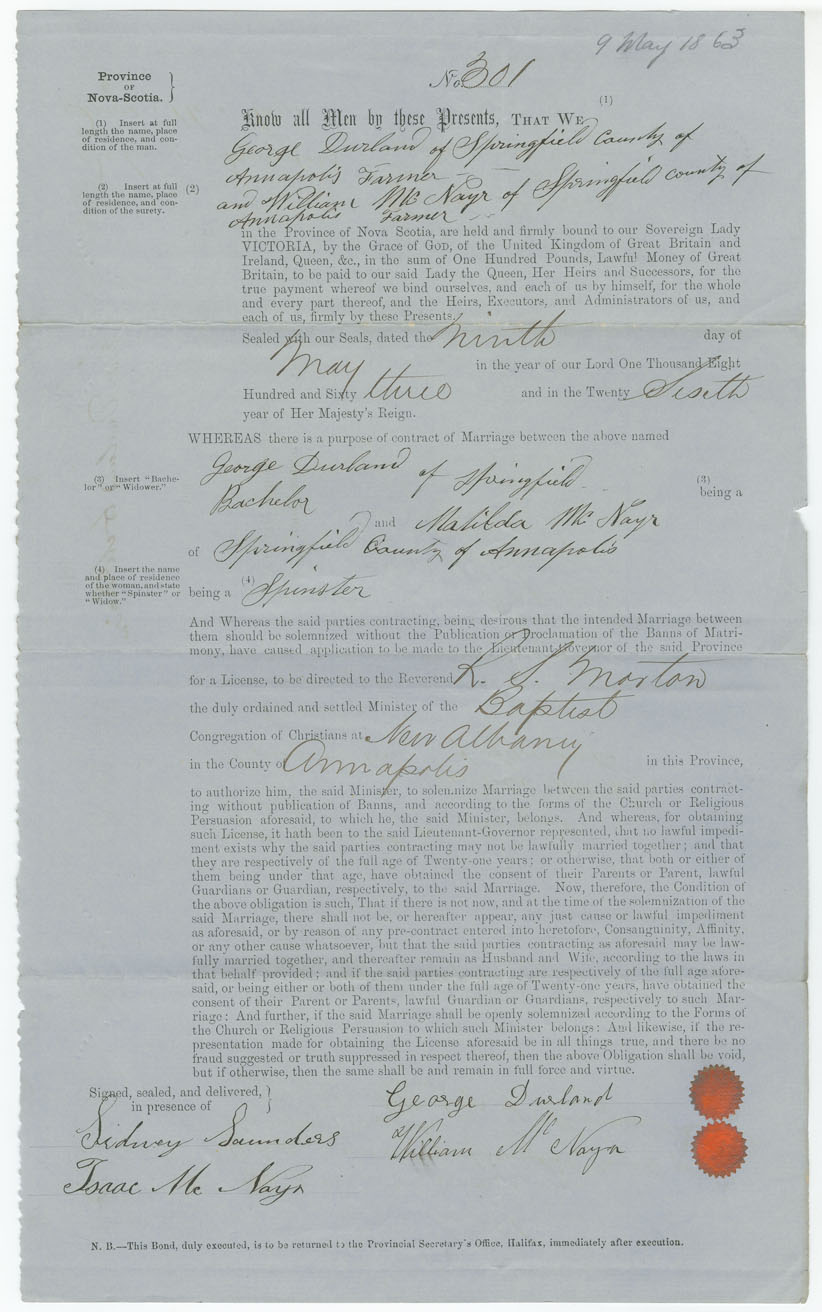 9 May 1863
No. 301
Province
OF
Nova-Scotia.
(1)
Know all Men by these Presents, THAT WE
(1) Insert at full
length the name, place
of residence, and con-
dition of the man.
George Durland of Springfield County of
Annapolis Farmer
(2) Insert at full
length the name, place
of residence, and con-
dition of the surety.
(2) and William Mc Nayr of Springfield county of
Annapolis Farmer
in the Province of Nova Scotia, are held and firmly bound to our Sovereign Lady
VICTORIA, by the Grace of GOD, of the United Kingdom of Great Britain and
Ireland, Queen, &c., in the sum of One Hundred Pounds, Lawful Money of Great
Britain, to be paid to our said Lady the Queen, Her Heirs and Successors, for the
true payment whereof we bind ourselves, and each of us by himself, for the whole
and every part thereof, and the Heirs, Executors, and Administrators of us, and
each of us, firmly by these Presents.
Sealed with our Seals, dated the ninth day of
May in the year of our Lord One Thousand Eight
Hundred and Sixty three and in the Twenty Sixth
year of Her Majesty's Reign.
WHEREAS there is a purpose of contract of Marriage between the above named
George Durland of Springfield
(3) Insert "Bache-
lor" or "Widower."
(3)
being a
Bachelor
and Matilda Mc Nayr
of Springfield County of Annapolis
(4) Insert the name
and place of residence
of the woman, and state
whether "Spinster" or
"Widow."
being a (4) Spinster
And Whereas the said parties contracting, being desirous that the intended Marriage between
them should be solemnized without the Publication or Proclamation of the Banns of Matri-
mony, have caused application to be made to the Lieutenant-Governor of the said Province
for a License, to be directed to the Reverend K. S. Morton
the duly ordained and settled Minister of the Baptist
Congregation of Christians at New Albany
in the County of Annapolis in this Province,
to authorize him, the said Minister, to solemnize Marriage between the said parties contract-
ing without publication of Banns, and according to the forms of the Church or Religious
Persuasion aforesaid, to which he, the said Minister, belongs. And whereas, for obtaining
such License, it hath been to the said Lieutenant-Governor represented, that no lawful impedi-
ment exists why the said parties contracting may not be lawfully married together; and that
they are respectively of the full age of Twenty-one years; or otherwise, that both or either of
them being under that age, have obtained the consent of their Parents or Parent, lawful
Guardians or Guardian, respectively, to the said Marriage. Now, therefore, the Condition of
the above obligation is such, That if there is not now, and at the time of the solemnization of the
said Marriage, there shall not be, or hereafter appear, any just cause or lawful impediment
as aforesaid, or by reason of any pre-contract entered into heretofore, Consanguinity, Affinity,
or any other cause whatsoever, but that the said parties contracting as aforesaid may be law-
fully married together, and thereafter remain as Husband and Wife, according to the laws in
that behalf provided; and if the said parties contracting are respectively of the full age afore-
said, or being either or both of them under the full age of Twenty-one years, have obtained the
consent of their Parent or Parents, lawful Guardian or Guardians, respectively to such Mar-
riage: And further, if the said Marriage shall be openly solemnized according to the Forms of
the Church or Religious Persuasion to which such Minister belongs: And likewise, if the re-
presentation made for obtaining the License aforesaid be in all things true, and there be no
fraud suggested or truth suppressed in respect thereof, then the above Obligation shall be void,
but if otherwise, then the same shall be and remain in full force and virtue.
Signed, sealed, and delivered,
in presence of
George Durland
Sidney Saunders
William Mc Nayr
Isaac Mc Nayr
N. B.—This Bond, duly executed, is to be returned to the Provincial Secretary's Office, Halifax, immediately after execution.